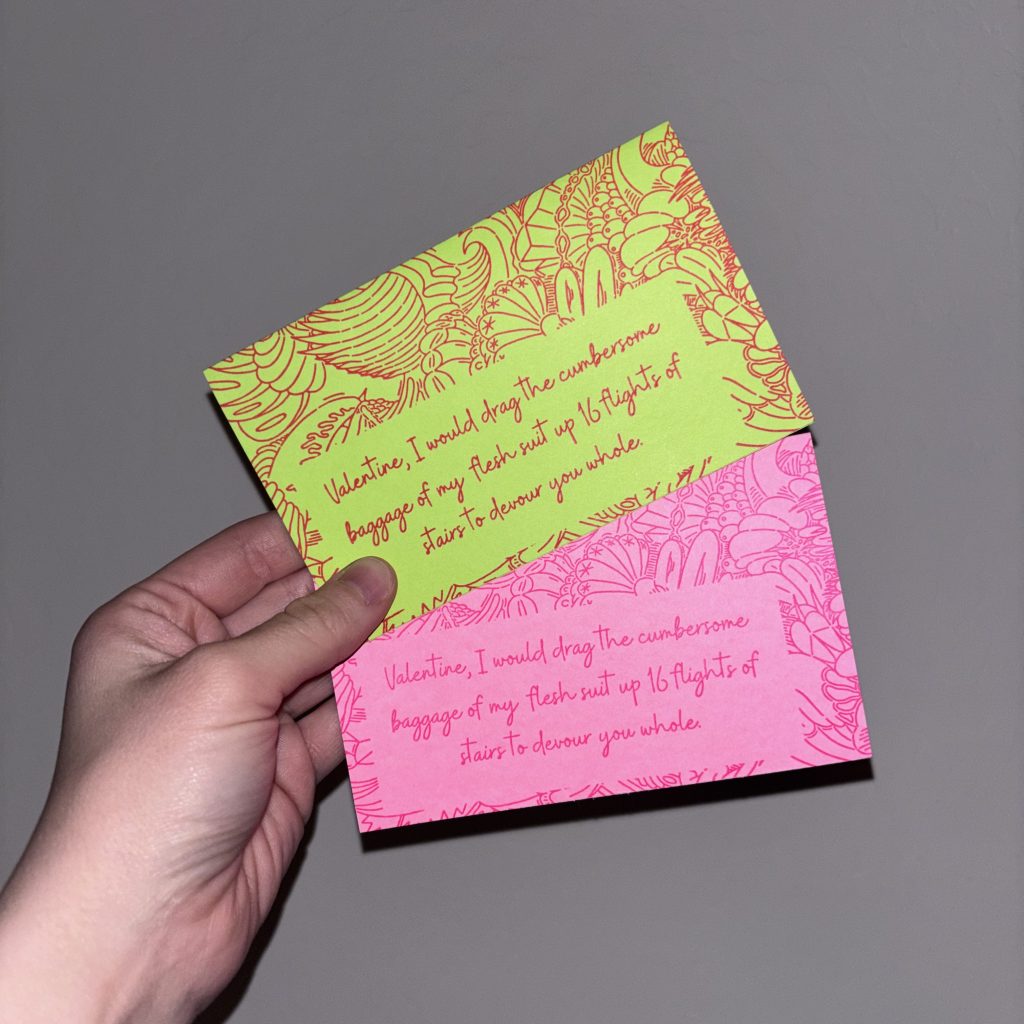 Valentine, I would drag the cumbersome
baggage of my flesh suit up 16 flights of
stairs to devour you whole.
Valentine, I would drag the cumbersome
baggage of my flesh suit up 16 flights of
stairs to devour you whole.